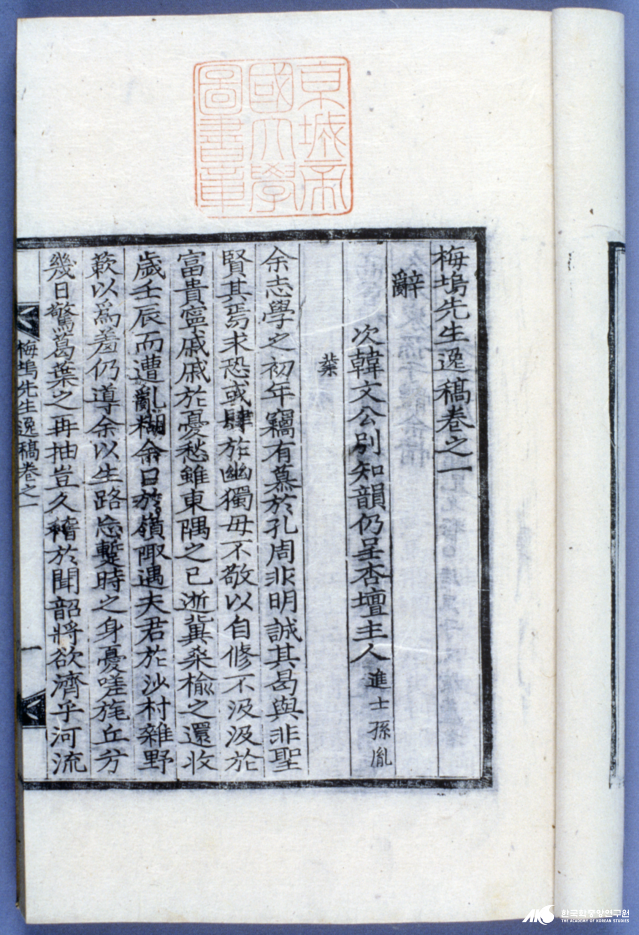 京城帝
國大學
圖書章
梅塢先生逸稿卷之一
辭
次韓文公別知韻仍呈杏壇主人 進士孫胤
余志學之初年竊有慕於孔周非明誠其曷與非聖
賢其焉求恐或肆於幽獨毋不敬以自修不汲汲於
富貴寧戚戚於憂愁雖東隅之已逝冀桑楡之還收
歲壬辰而遭亂糊余口於嶺陬遇夫君於沙村雜野
蔌以爲羞仍導余以生路忘蹔時之身憂嗟旄丘兮
幾日驚葛葉之再抽豈久稽於聞韶將欲濟乎河流
梅塢先生逸稿卷之一
一
한국학중앙연구원
THE ACADEMY OF KOREAN STUDIES